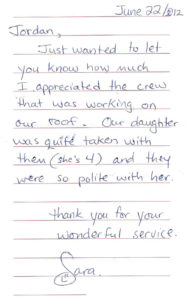 June 22/2012
Jordan,
Just wanted to let
you know how much
I appreciated the crew
that was working on
our roof. Our daughter
was quite taken with
them (she's 4) and they
were so polite with her.
Thank you for your
wonderful service.
Sara.